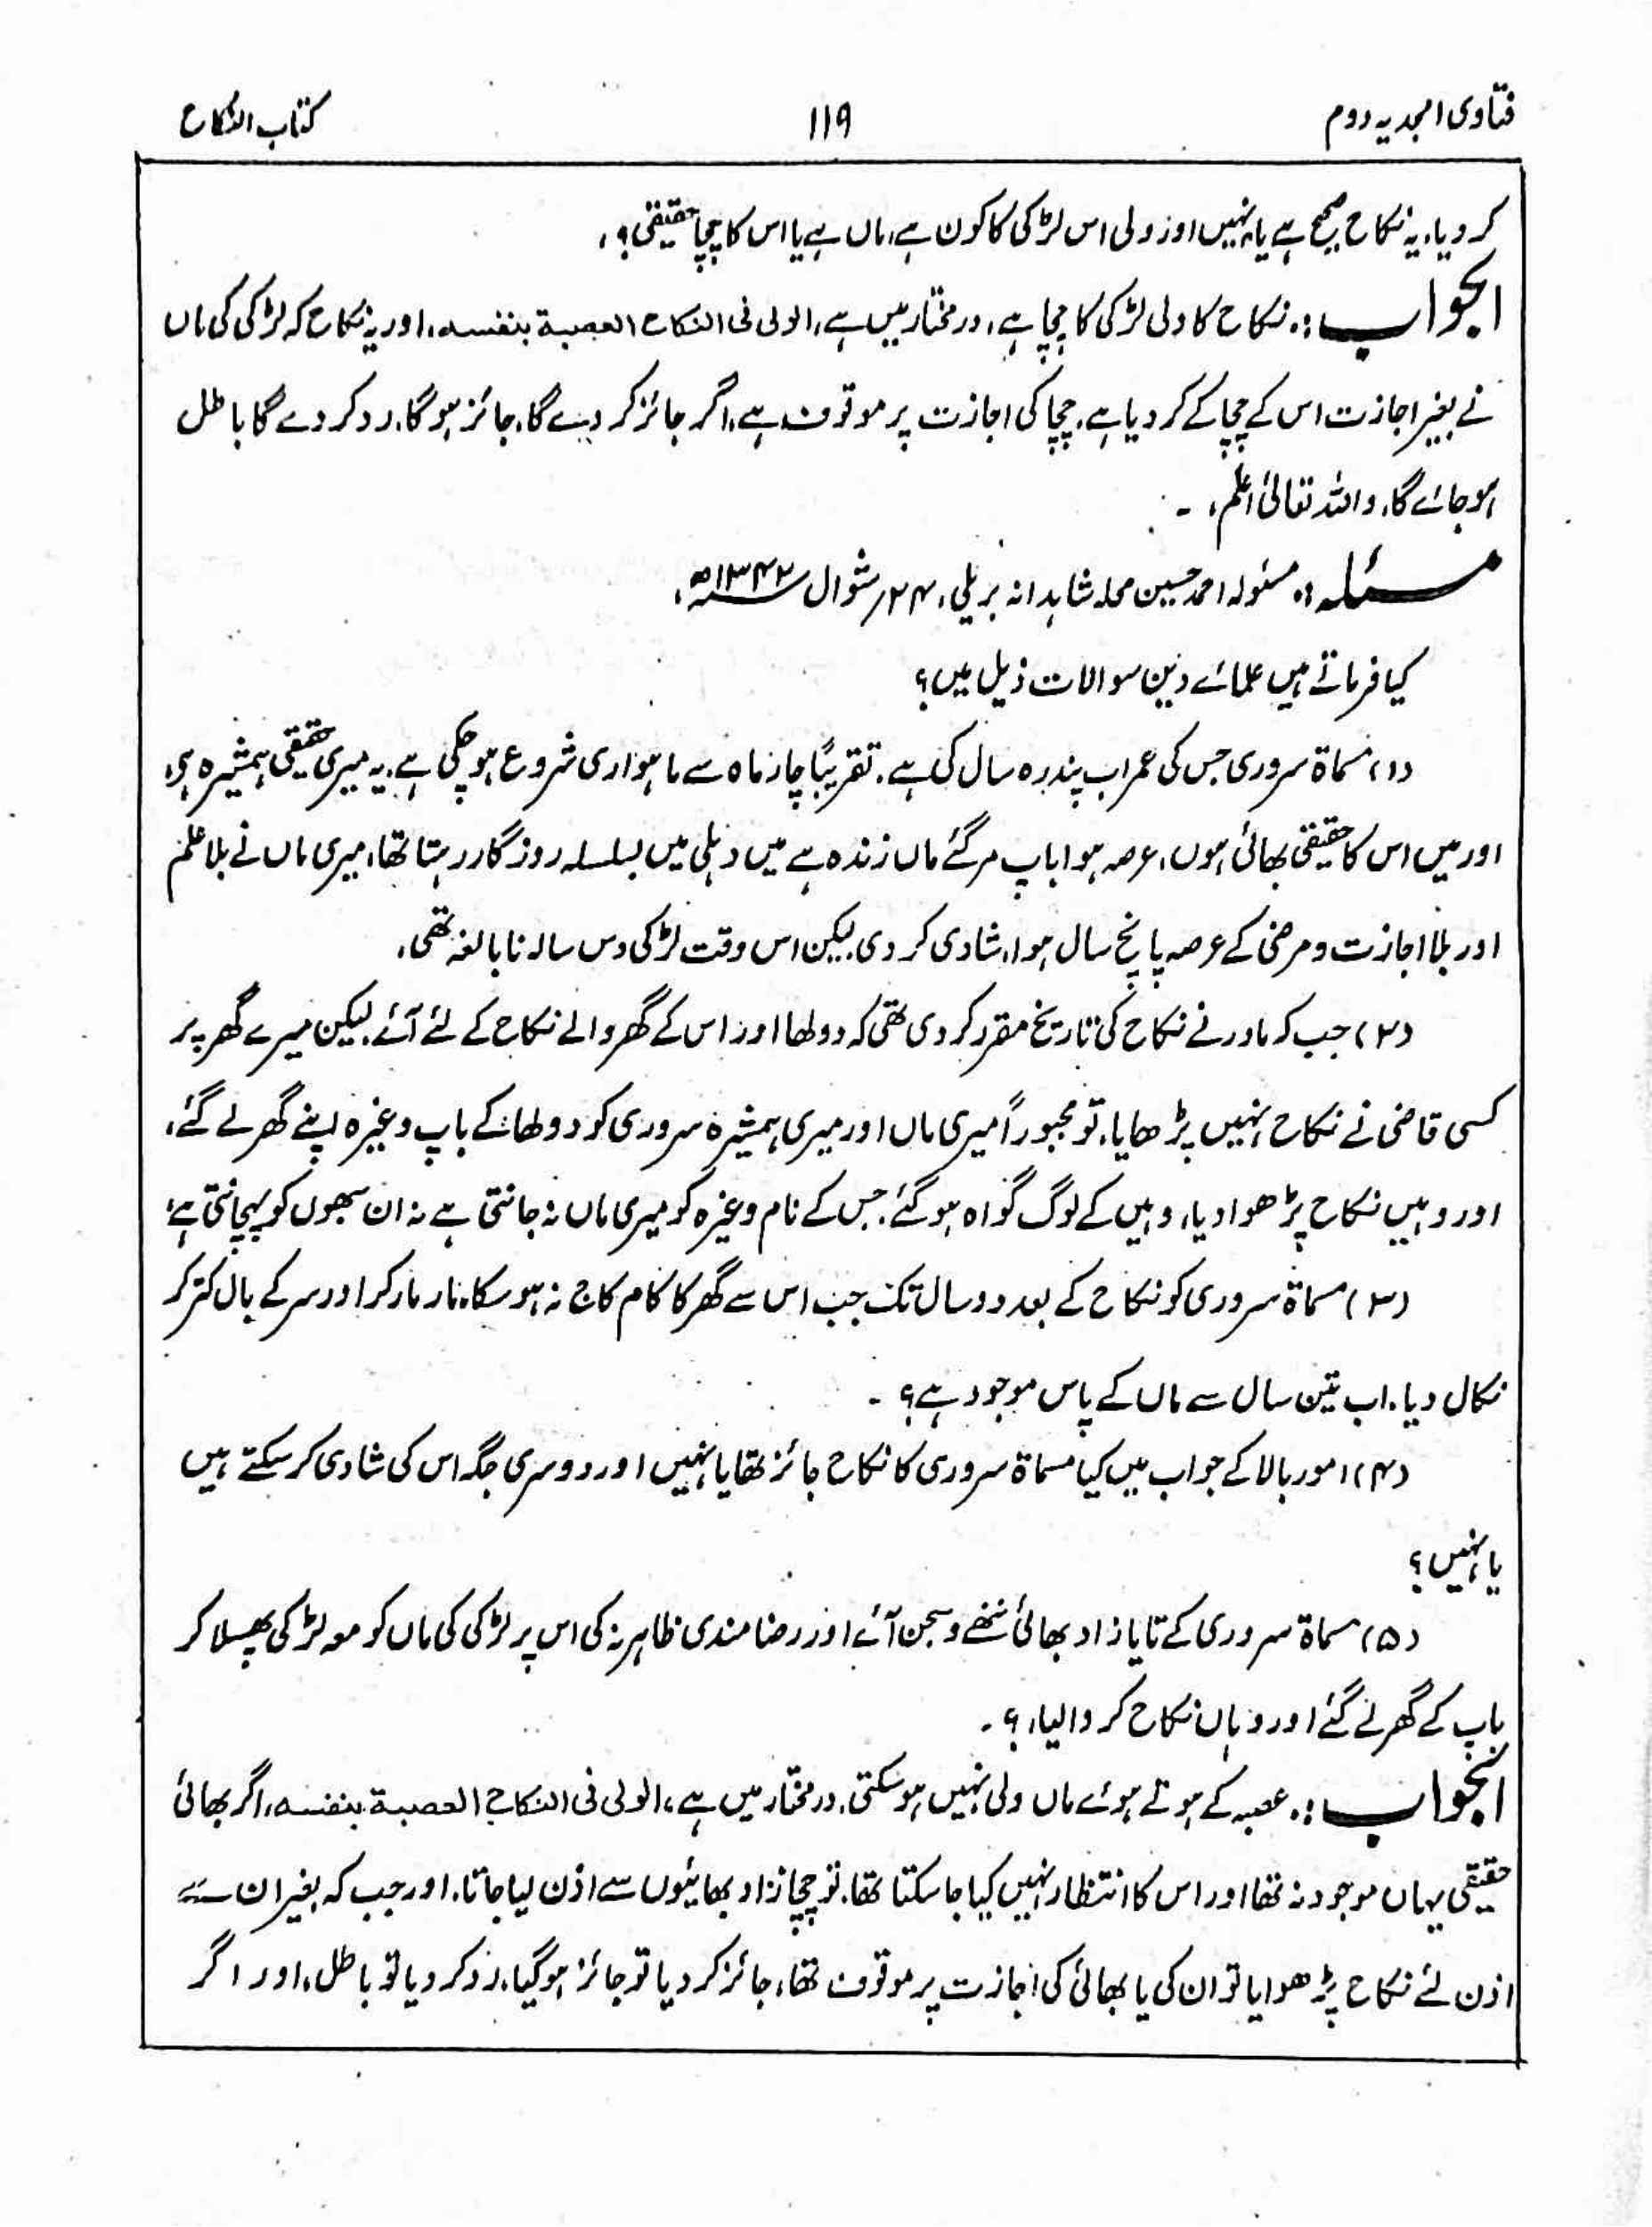 فتاوی امجدیہ دوم ۱۱۹ کتاب النکاح
کر دیا، یہ نکاح صحیح ہے یا نہیں اور ولی اس لڑکی کا کون ہے، ماں ہے یا اس کا چچا حقیقی؟،
الجواب :۔ نکاح کا ولی لڑکی کا چچا ہے، در مختار میں ہے، الولی فی النکاح العصبۃ بنفسہ، اور یہ نکاح کہ لڑکی کی ماں
نے بغیر اجازت اس کے چچا کے کر دیا ہے، چچا کی اجازت پر موقوف ہے، اگر جائز کر دے گا، جائز ہو گا، رد کر دے گا باطل
ہو جائے گا، واللہ تعالیٰ اعلم، ۔
مسئلہ :۔ مسئولہ احمد حسین محلہ شاہدانہ بریلی، ۲۴؍ شوال ۱۳۴۲ھ،
کیا فرماتے ہیں علمائے دین سوالات ذیل میں؟
(۱) مسماۃ سروری جس کی عمر اب پندرہ سال کی ہے، تقریباً چار ماہ سے ماہواری شروع ہو چکی ہے، یہ میری حقیقی ہمشیرہ ہے،
اور میں اس کا حقیقی بھائی ہوں، عرصہ ہوا باپ مر گئے ماں زندہ ہے میں دہلی میں بسلسلہ روزگار رہتا تھا، میری ماں نے بلا علم
اور بلا اجازت و مرضی کے عرصہ پانچ سال ہوا، شادی کر دی، لیکن اس وقت لڑکی دس سالہ نابالغہ تھی،
(۲) جب کہ مادر نے نکاح کی تاریخ مقرر کر دی تھی کہ دولھا اور اس کے گھر والے نکاح کے لئے آئے، لیکن میرے گھر پر
کسی قاضی نے نکاح نہیں پڑھایا، تو مجبوراً میری ماں اور میری ہمشیرہ سروری کو دولھا کے باپ وغیرہ اپنے گھر لے گئے،
اور وہیں نکاح پڑھوا دیا، وہیں کے لوگ گواہ ہو گئے، جس کے نام وغیرہ کو میری ماں نہ جانتی ہے نہ ان سبھوں کو پہچانتی ہے،
(۳) مسماۃ سروری کو نکاح کے بعد دو سال تک جب اس سے گھر کا کام کاج نہ ہو سکا، مار مار کر اور سر کے بال کتر کر
نکال دیا، اب تین سال سے ماں کے پاس موجود ہے؟ ۔
(۴) امور بالا کے جواب میں کیا مسماۃ سروری کا نکاح جائز تھا یا نہیں اور دوسری جگہ اس کی شادی کر سکتے ہیں
یا نہیں؟
(۵) مسماۃ سروری کے تایا زاد بھائی ننھے و سجن آئے اور رضامندی ظاہر نہ کی اس پر لڑکی کی ماں کو معہ لڑکی پھسلا کر
باپ کے گھر لے گئے اور وہاں نکاح کر والیا، ؟ ۔
الجواب :۔ عصبہ کے ہوتے ہوئے ماں ولی نہیں ہو سکتی، در مختار میں ہے، الولی فی النکاح العصبۃ بنفسہ، اگر بھائی
حقیقی یہاں موجود نہ تھا اور اس کا انتظار نہیں کیا جا سکتا تھا، تو چچا زاد بھائیوں سے اذن لیا جاتا، اور جب کہ بغیر ان سے
اذن لئے نکاح پڑھوایا تو ان کی یا بھائی کی اجازت پر موقوف تھا، جائز کر دیا تو جائز ہو گیا، رد کر دیا تو باطل، اور اگر